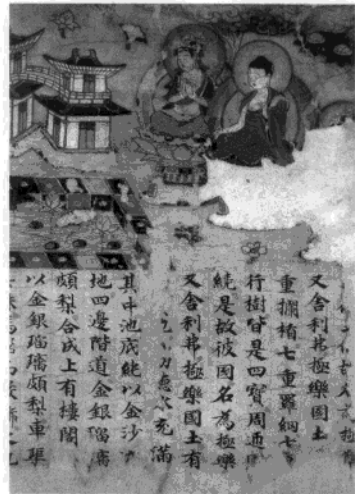 又舍利弗極樂國土
重欄楯七重羅網七
行樹皆是四寶周
繞是故彼國名為極樂
又舍利弗極樂國土有
水充滿
其中池底純以金沙
地四邊階道金銀瑠璃
頗梨合成上有樓閣
以金銀瑠璃頗梨車磲